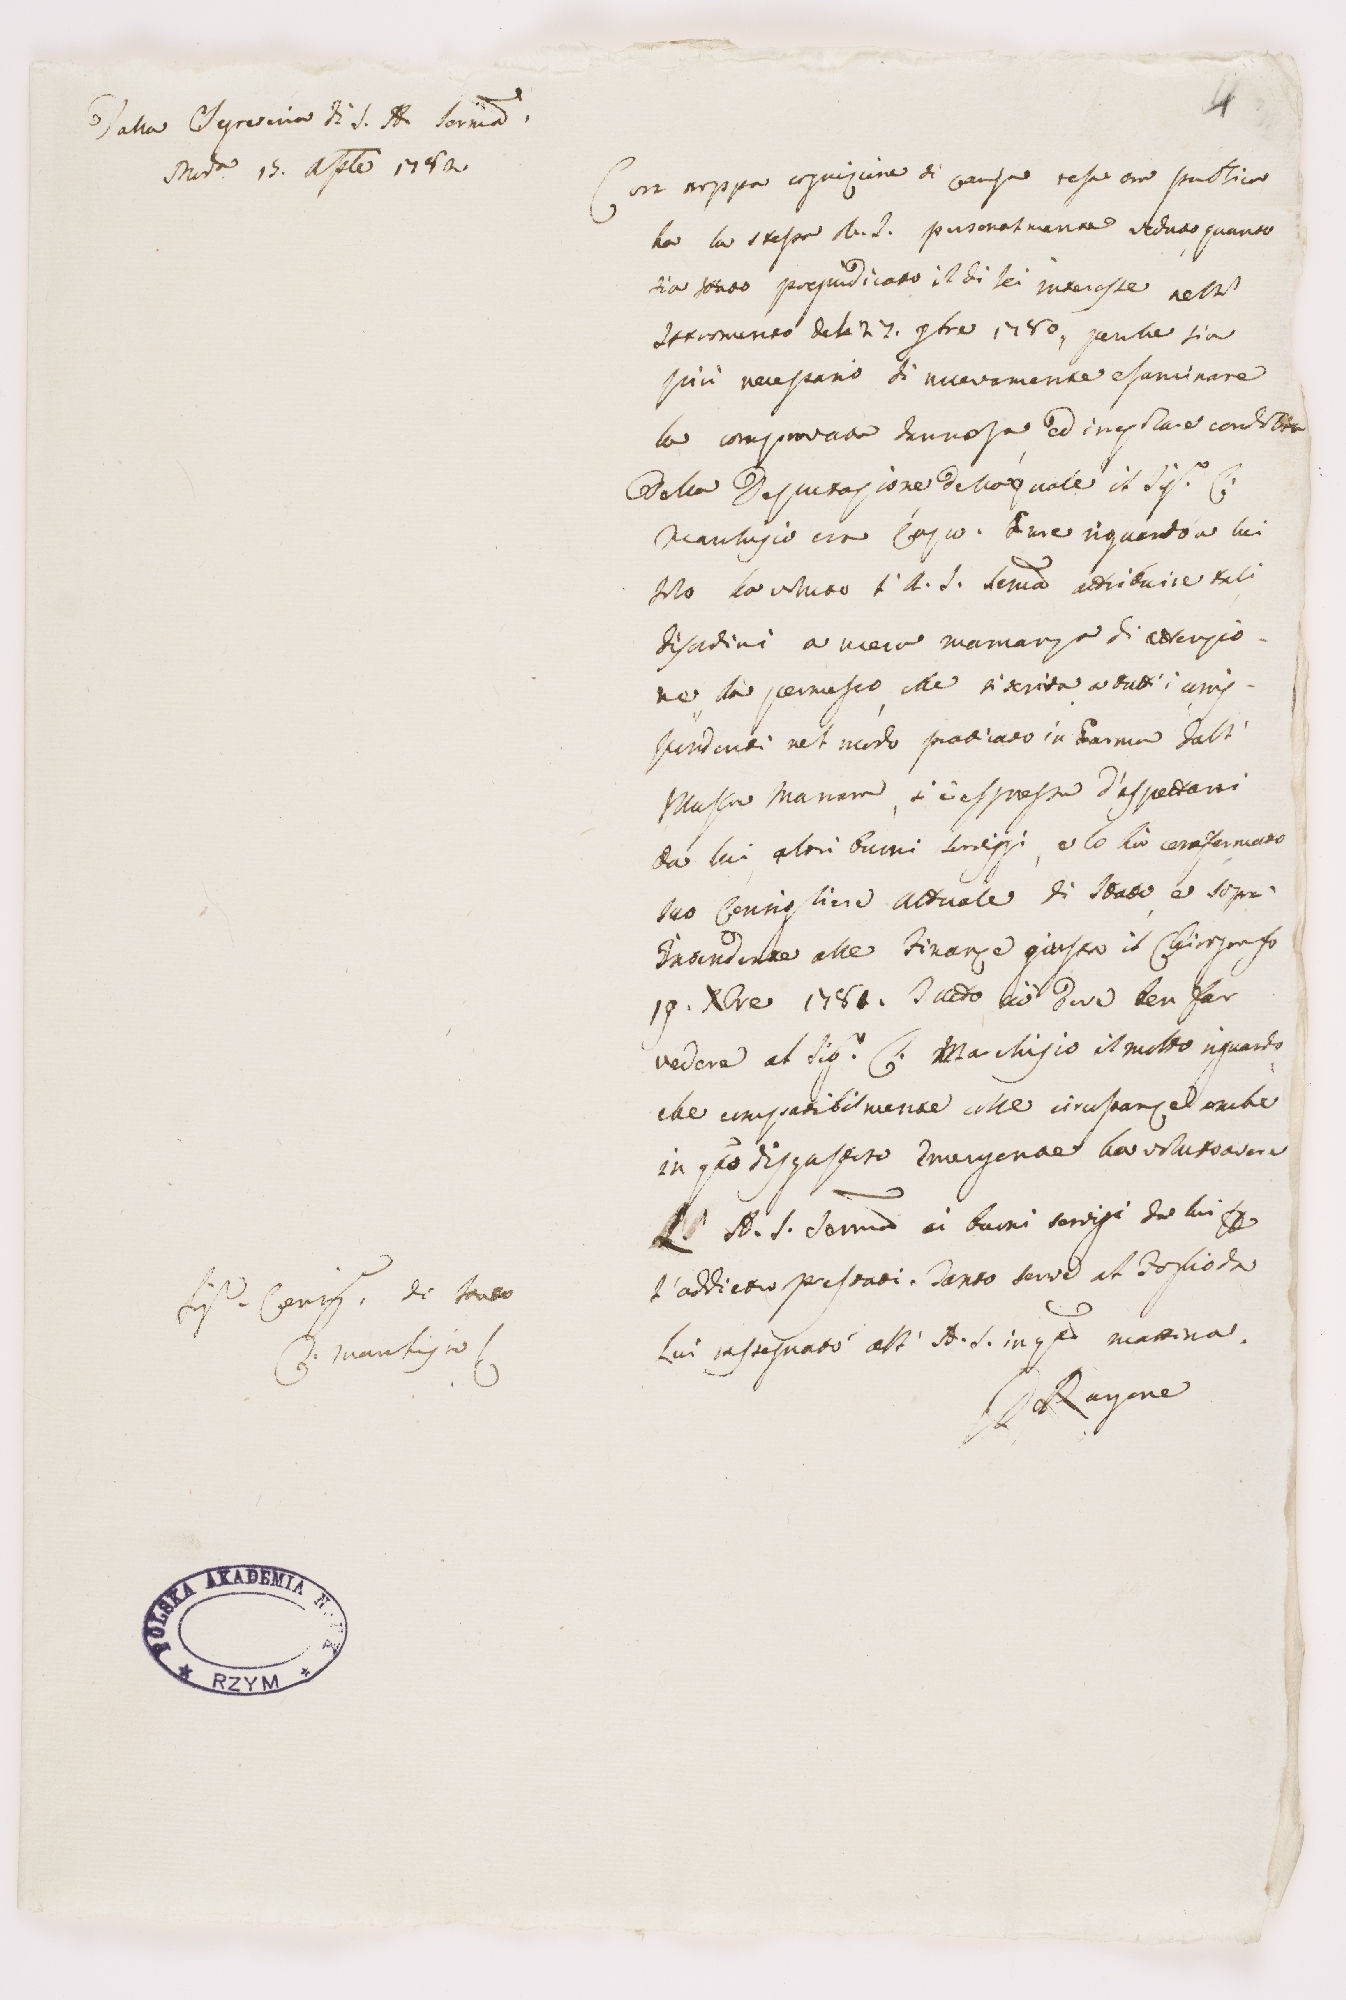 4
Dalla Segreteria di S. A. Serma.
Moda 15. Aprile 1782
Con troppa cognizione di causa resa ora publica
ha la stessa A. S. personalmente veduto, quanto
sia stato pregiudicato il di lei interesse nell'
Istromento deli 27. 9bre 1780, perche sia
più necessario di nuovamente esaminare
la comprovata dannosa, ed condotta
Della Deputazione, della quale il Sigr. C.
Marchisio era Capo. Pure riguardo a lui
solo ha voluto l'A. S. Serma attribuire tali
disordini a mera mancanza di attenzio-
ne, ha permesso, che si scriva a tutti i corris-
pondenti nel modo praticato in Parma dall'
Manara, si è espressa d'aspettarsi
da lui altri buoni servigj, e lo hà confermato
suo Consigliere attuale di Stato, e sopra-
Intendente alle Finanze giusta il Chirografo
19. Xbre 1781. Tutto ciò deve ben far
vedere al Sigr. C. Marchisio il molto riguardo,
che compatibilmente colle circostanze anche
in qta disgustosa emergenza ha voluto avere
L' A. S. Serma ai buoni servigj da lui per
l'addietro prestati. Tanto serve al Foglio da
Lui rassegnato all' A. S. in qta mattina.
De Ragone
Sigr. Consigre. di Stato
C. Marchisio
POLSKA AKADEMIA NAUK
RZYM